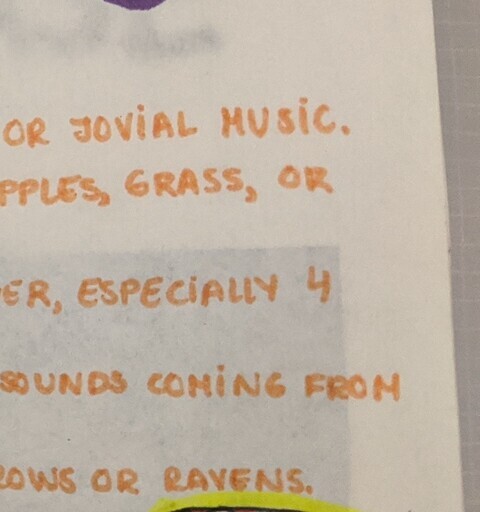 OR JOViAL MUSiC.
PPLES, GRASS, OR
ER, ESPECiALLY 4
SOUNDS COMiNG FROM
ROWS OR RAVENS.